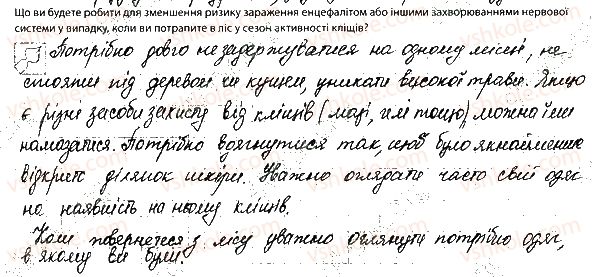 Що ви будете робити для зменшення ризику зараження енцефалітом або іншими захворюваннями нервової
системи у випадку, коли ви потрапите в ліс у сезон активності кліщів?
Потрібно довго не задержуватися на одному місці, не
стояти під деревом чи кущем, уникати високої трави. Якщо
є різні засоби захисту від кліщів (мазі, гелі тощо), можна їми
намазатися. Потрібно вдягнутися так, щоб було якнайменше
відкритс ділянок шкіри. Уважно оглядати часто свій одяг
на наявність на ньому кліщів.
Коли повернетеся з лісу уважно оглянути потрібно одяг,
в якому ви були.